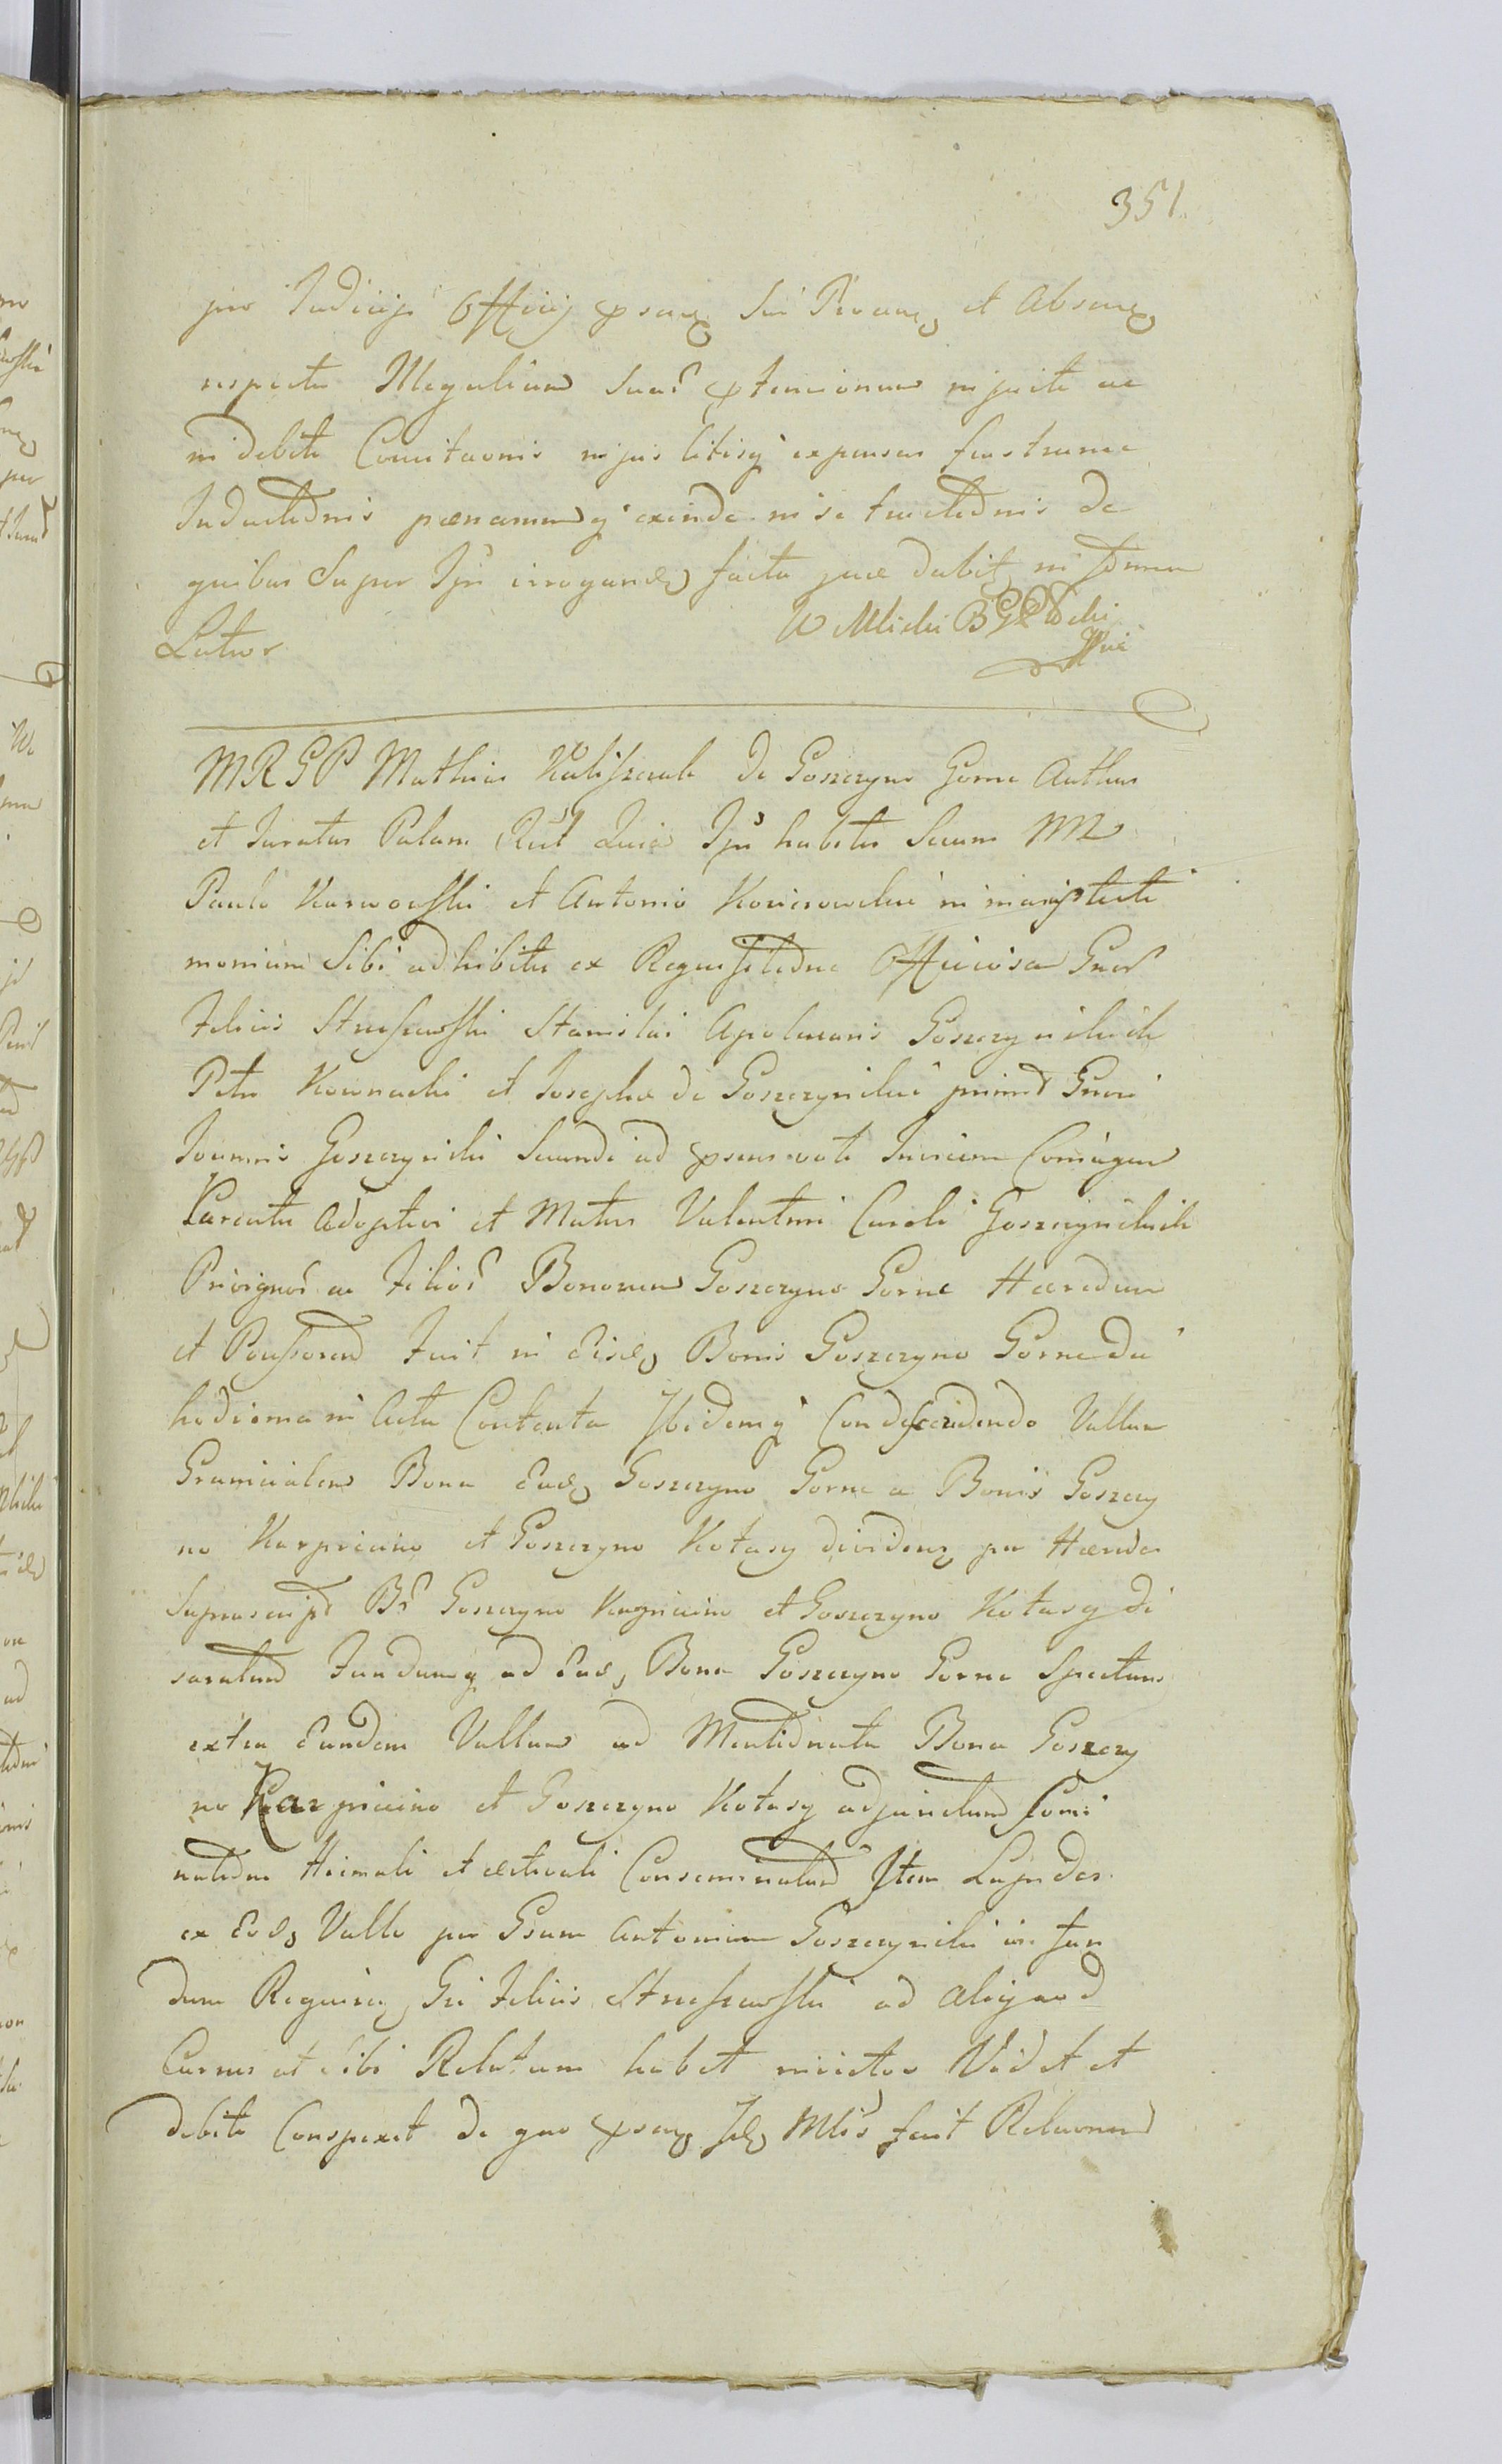 351.
pro Judicijs Officij psentj sui Personaj et absentj
respectu Illegalium suar ptensionum injuste ac
indebite Concitaonis injus litisq expensas frustranae
Inductionis paenarumq exinde
quibus super Ipso irrogandj facta quae dabitj in forma
Lator
MRGP Mathias Kaliszczak de Goszczyno Gorne Authus
et Juratus Palam Rcul Quia Ipse habitis Secum NN
Paulo Karwowski et Antonio in majus testi
monium Sibi adhibitis ex Requisitione Officiosa Gnor
Felicis Struszewski Stanislai Apolinaris Goszczynskich
Petri Kownacki et Josepha de Goszczynskie primi Gnosi
Joannis Goszczynski secundi ad psens voti Invicem Conjugum
Parentis adoptivi et Matris Valentini Caroli Goszczynskich
Privignor ac Filior Bonorum Goszczyno Gorne Haeredum
et Possessorum Fuit in Eisdj Bonis Goszczyno Gorne Die
hodierna in Actu Contenta Ibidemq Condescendendo Vallum
Granicialem Bona Eadj Goszczyno Gorne a Bonis Goszczy
no Karpiecino et Goszczyno Kotasy dividens per Haeredes
Suprascript Br Goszczyno Karpiecino et Goszczyno Kotasy di
saratum Fundumq ad Eadj Bona Goszczyno Gorne Spectans
extra Eundem Vallum ad Mentionata Bona Goszczy
no Karpiecino et Goszczyno Kotasy adjunctum Semi
natione Hiemali et aestivali Conseminatum Item Lapides
ex Eodj Vallo per Gsum Antonium Goszczynski in fun
dum Requirentj Gsi Felicis Struszewski ad aliquod
Currus ut sibi Relatum habet invectos Vidit et
debite Conspexit de quo psentj Idj Mlis fecit Relaonem